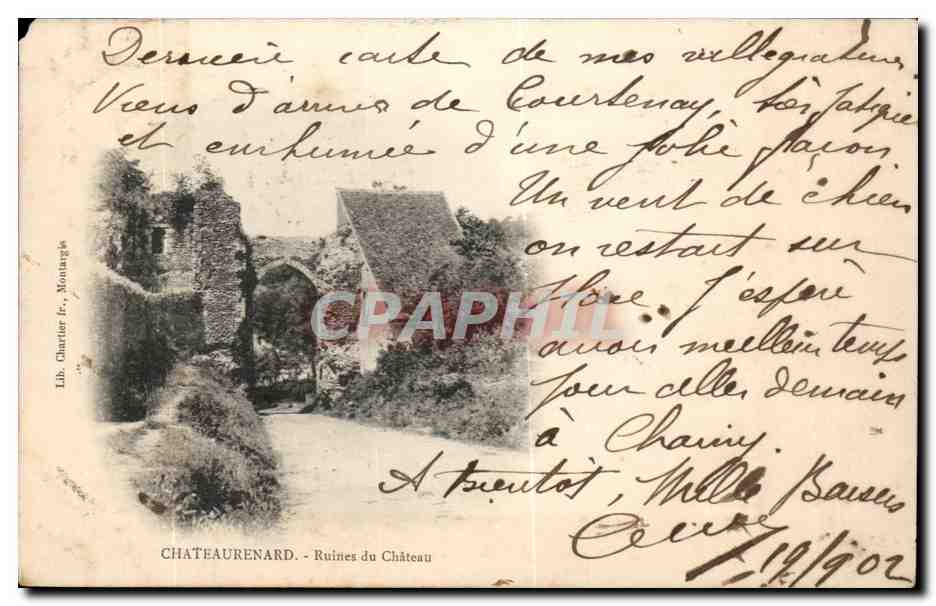 Dernière carte de mes villegiatures
Viens d'arriver de Courtenay, très fatiguée
et enrhumée d'une jolie façon
Un vent de chien
on restait sur
place. J'espère
avoir meilleur temps
pour aller demain
à Charny.
A bientôt, Mille Baisers
19/9 02
CPAPHIL
Lib. Chartier fr., Montargis
CHATEAURENARD. - Ruines du Château